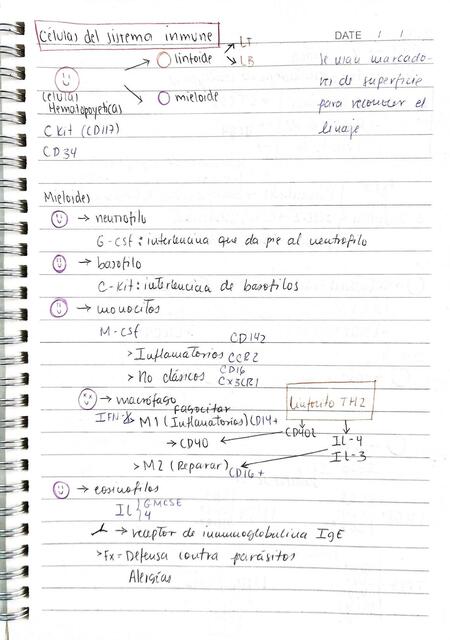 Células del sistema inmune
DATE / /
→ LT
linfoide → LB
Se usan marcado-
res de superficie
para reconocer el
linaje
mieloide
Células
Hematopoyéticas
C Kit (CD117)
CD34
Mieloides
→ neutrofilo
G-csf: interleucina que da pie al neutrofilo
→ basofilo
C-Kit: interleucina de basofilos
→ monocitos
M-csf
> Inflamatorios CD142 CCR2
> No clásicos CD16 CX3CR1
→ macrófago
fagocitar
IFN-γ > M1 (Inflamatorios) CD14+
→ CD40
Linfocito TH2
CD40L
IL-4
IL-3
> M2 (Reparar) CD16+
→ eosinofilos
IL { GMCSF
4
→ receptor de inmunoglobulina IgE
> Fx = Defensa contra parásitos
Alergias